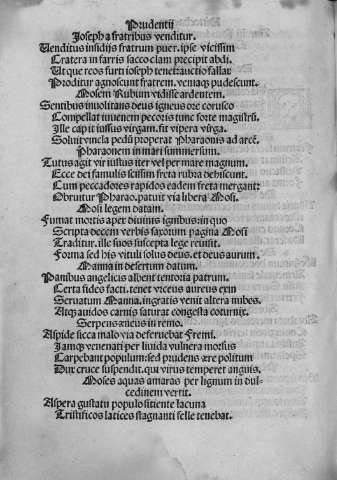 Prudentii
Joseph a fratribus venditur.
Uenditus insidijs fratrum puer. ipse vicissim
Cratera in farris sacco clam precipit abdi.
Ut que reos furti ioseph tenet: auctio fallax
Proditur agnoscunt fratrem. veniaq pudescunt.
Mosem Rubum vidisse ardentem.
Sentibus inuolitans deus igneus ore corusco
Compellat iuuenem pecoris tunc forte magistrũ.
Ille capit iussus virgam. fit vipera virga.
Soluit vincla pedũ properat Pharaonis ad arcẽ.
Pharaonem in mari summersum.
Tutus agit vir iustus iter vel per mare magnum.
Ecce dei famulis scissim freta rubra dehiscunt.
Cum peccadores rapidos eadem freta mergant:
Obruitur Pharao. patuit via libera Mosi.
Mosi legem datam.
Fumat mortis apex diuinis ignibus: in quo
Scripta decem verbis saxorum pagina Mosi
Traditur. ille suos suscepta lege reuisit.
Forma sed his vituli solus deus. et deus aurum.
Manna in desertum datum.
Panibus angelicis albent tentoria patrum.
Certa fides facti. tenet vrceus aureus exin
Seruatum Manna. ingratis venit altera nubes.
Atq auidos carnis saturat congesta coturnix.
Serpens ęneus in remo.
Aspide sicca malo via deferuebat Eremi.
Jamq venenati per liuida vulnera morsus
Carpebant populum: sed prudens ęre politum
Dux cruce suspendit. qui virus temperet anguis.
Moses aquas amaras per lignum in dul-
cedinem vertit.
Aspera gustatu populo sitiente lacuna
Tristificos latices stagnanti felle tenebat.